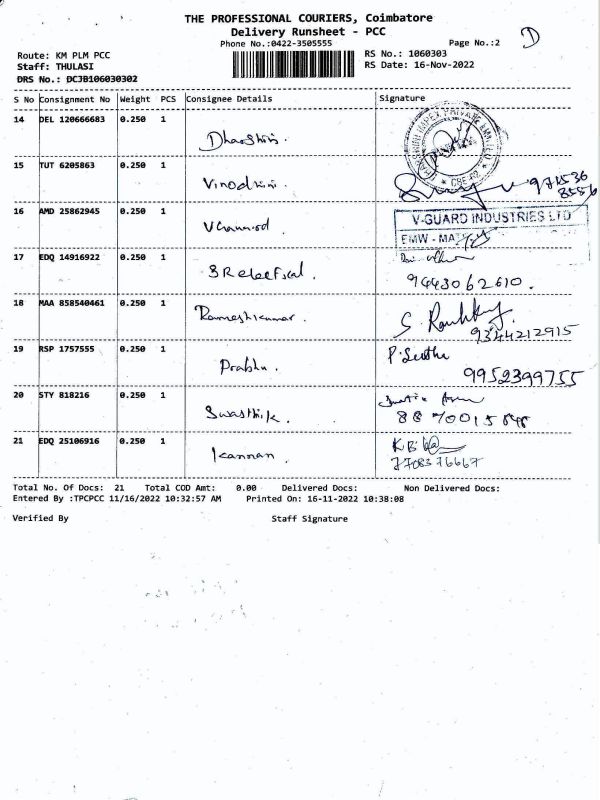 THE PROFESSIONAL COURIERS, Coimbatore
Delivery Runsheet - PCC
Phone No.:0422-3505555
Page No.:2
D
Route: KM PLM PCC
RS No.: 1060303
Staff: THULASI
RS Date: 16-Nov-2022
DRS No.: DCJB106030302
S No Consignment No Weight PCS Consignee Details Signature
14 DEL 120666683 0.250 1 Dharshini.
15 TUT 6205863 0.250 1 Vinodhini. 971536
8556
16 AMD 25862945 0.250 1 V-GUARD INDUSTRIES LTD
EMW - MA
17 EDQ 14916922 0.250 1 9443062610.
18 MAA 858540461 0.250 1 Rameshkumar. 9344212915
19 RSP 1757555 0.250 1 Prabhu. 9952399755
20 STY 818216 0.250 1 Swasthik.
21 EDQ 25106916 0.250 1 Kannan. 7708376667
Total No. Of Docs: 21 Total COD Amt: 0.00 Delivered Docs: Non Delivered Docs:
Entered By :TPCPCC 11/16/2022 10:32:57 AM Printed On: 16-11-2022 10:38:08
Verified By Staff Signature